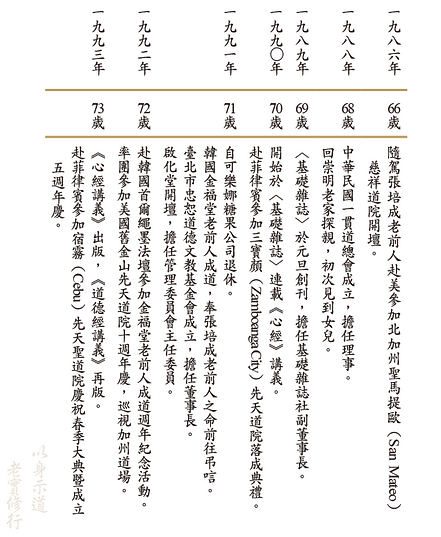 一九八六年 66歲 隨駕張培成老前人赴美參加北加州聖馬提歐（San Mateo）
慈祥道院開壇。
一九八八年 68歲 中華民國一貫道總會成立，擔任理事。
回崇明老家探親，初次見到女兒。
一九八九年 69歲 〈基礎雜誌〉於元旦創刊，擔任基礎雜誌社副董事長。
一九九〇年 70歲 開始於〈基礎雜誌〉連載《心經》講義。
赴菲律賓參加三寶顏（Zamboanga City）先天道院落成典禮。
一九九一年 71歲 自可樂娜糖果公司退休。
韓國金福堂老前人成道，奉張培成老前人之命前往弔唁。
臺北市忠恕道德文教基金會成立，擔任董事長。
啟化堂開壇，擔任管理委員會主任委員。
一九九二年 72歲 赴韓國首爾繩墨法壇參加金福堂老前人成道週年紀念活動。
率團參加美國舊金山先天道院十週年慶，巡視加州道場。
一九九三年 73歲 《心經講義》出版，《道德經講義》再版。
赴菲律賓參加宿霧（Cebu）先天聖道院慶祝春季大典暨成立
五週年慶。
以身示道
老實修行